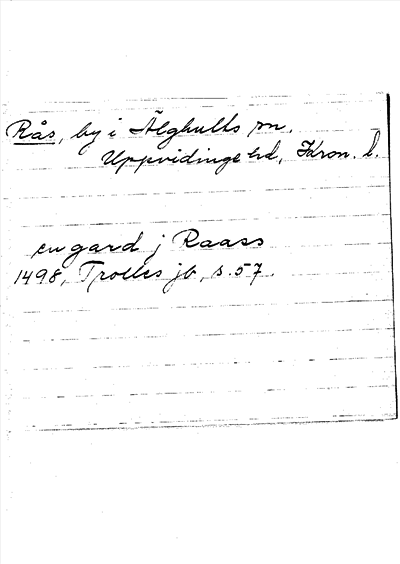 Rås, by i Älghults sn.
Uppvidinge hd, Kron. l.
en gard j Raass
1498, Trolles jb, s. 57.